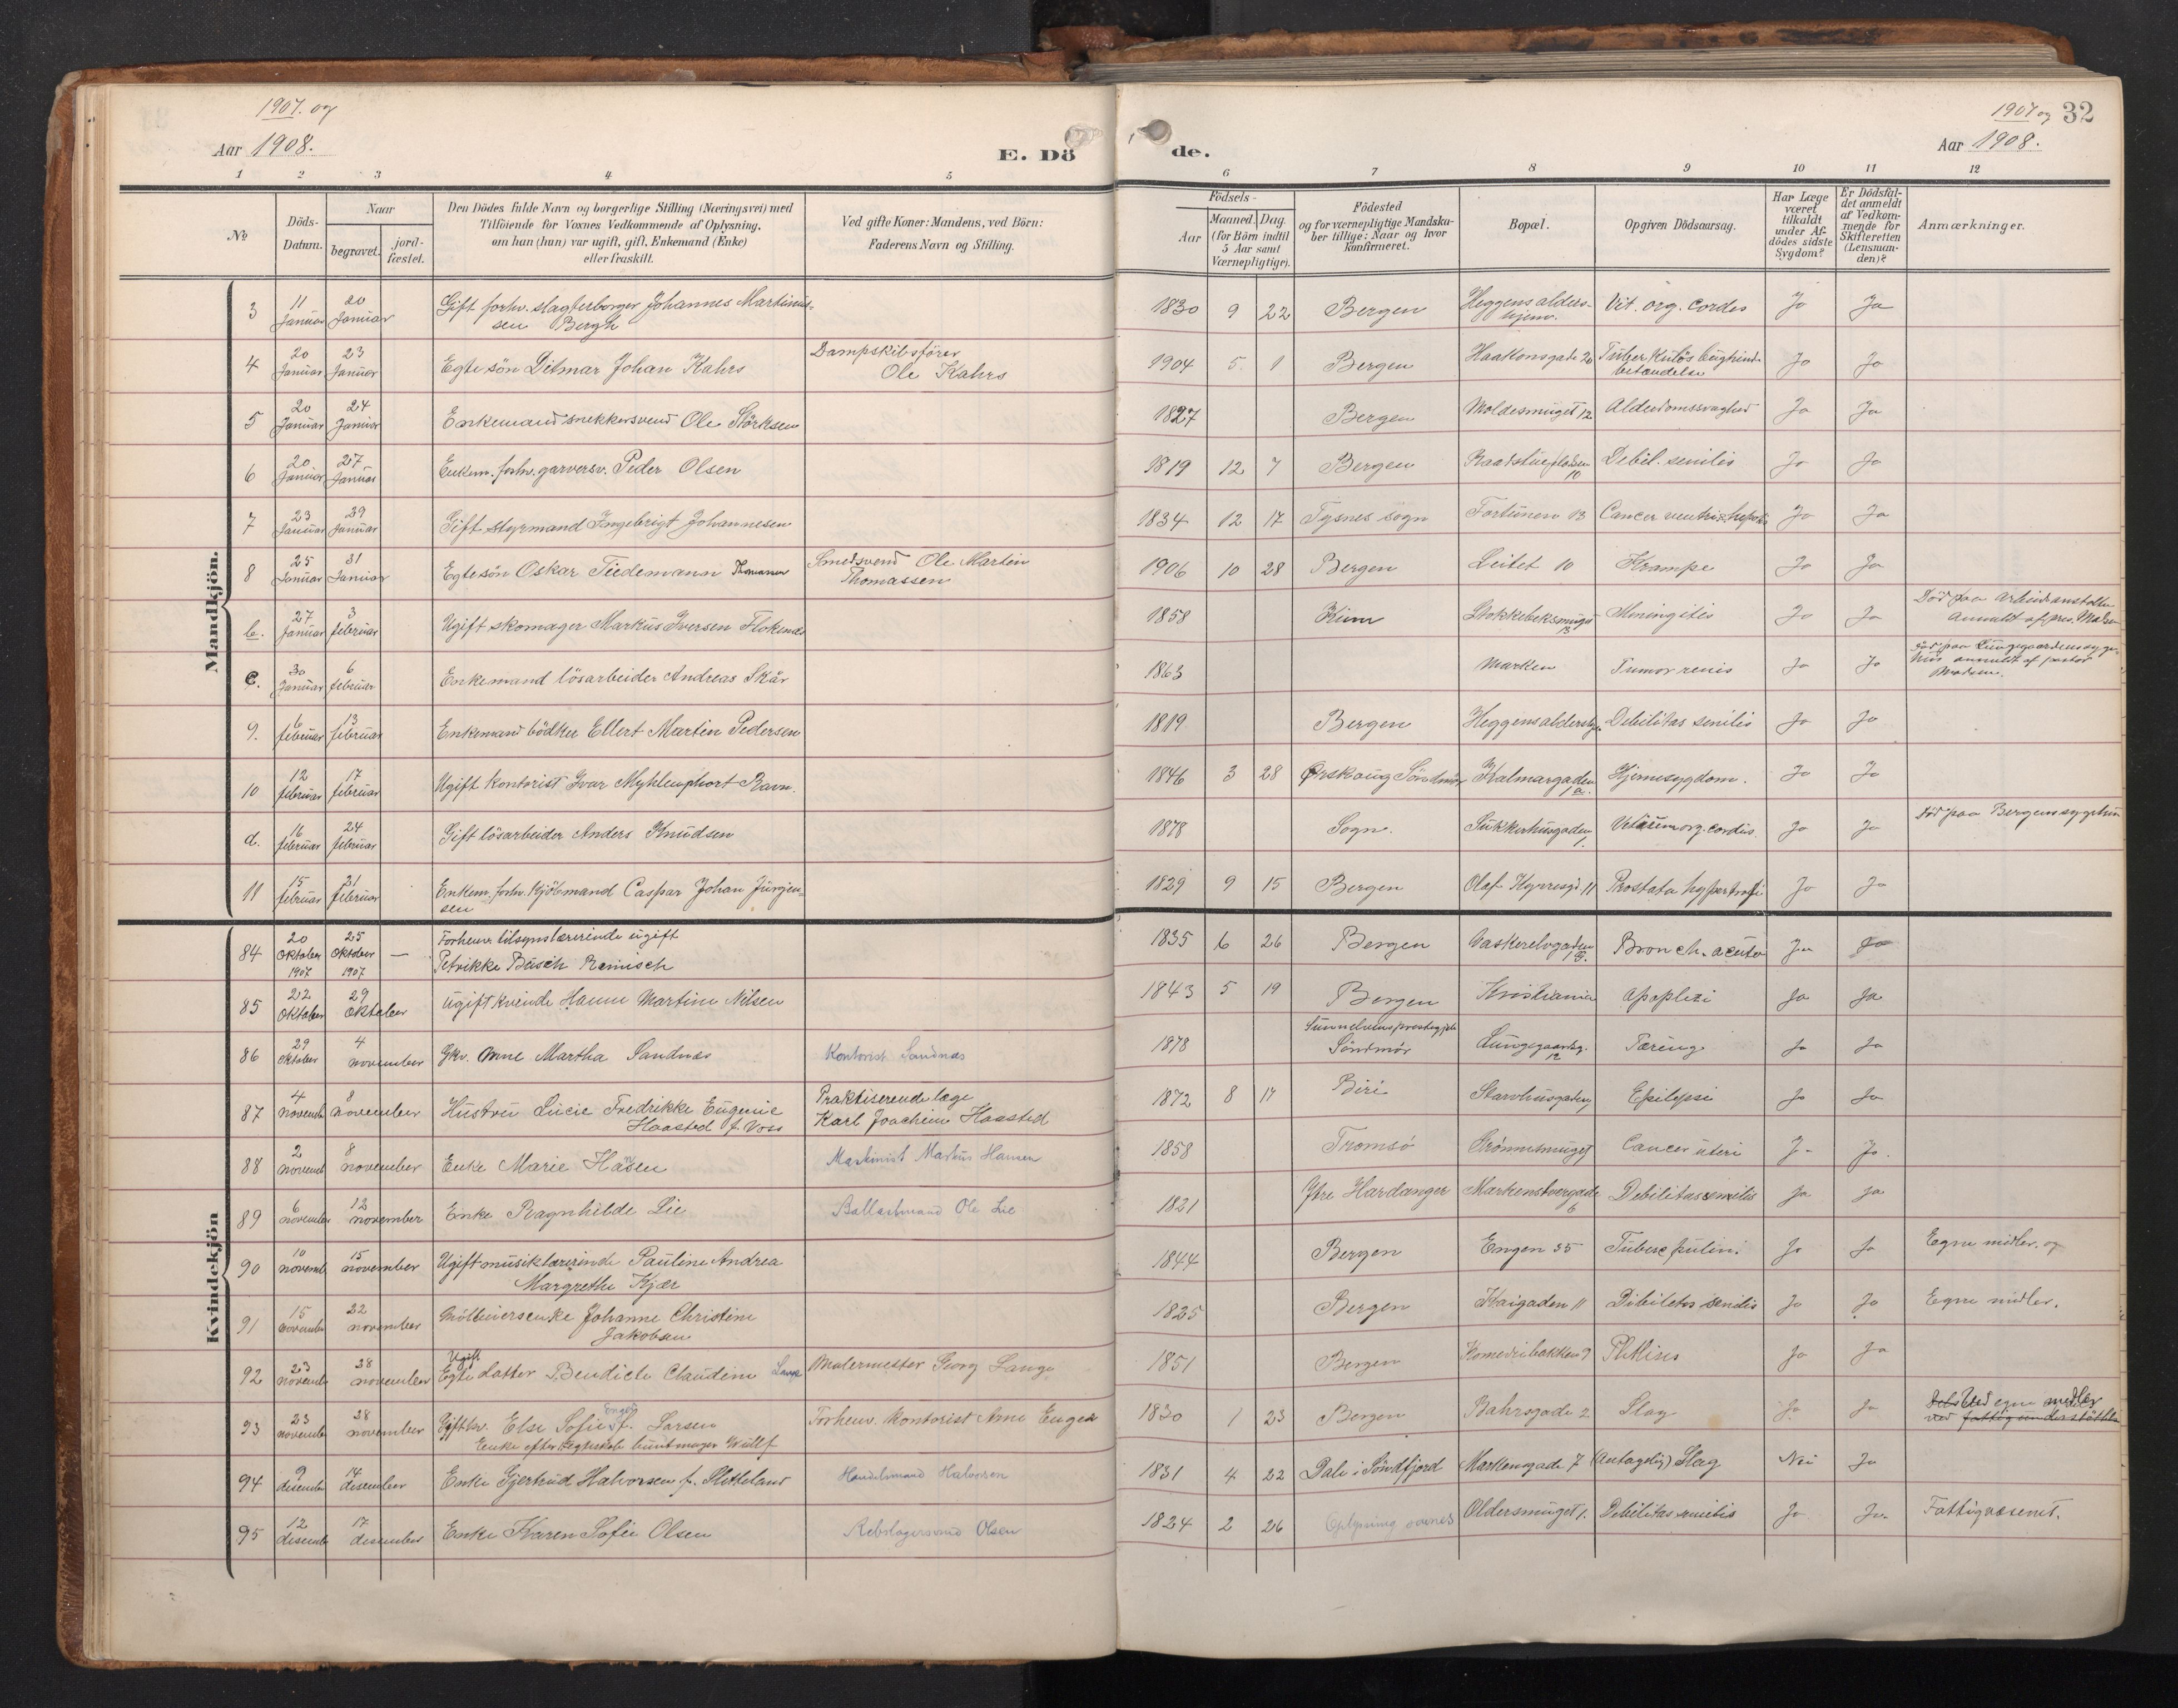 1907. og
Aar 1908.
E. Dö
de.
1907 og
Aar 1908.
32
1 2 3 4 5 6 7 8 9 10 11 12
No
Döds-Datum.
Naar
begravet.
jord-fæstet.
Den Dödes fulde Navn og borgerlige Stilling (Næringsvei) med
Tilföiende for Voxnes Vedkommende af Oplysning,
om han (hun) var ugift, gift, Enkemand (Enke)
eller fraskilt.
Ved gifte Koner: Mandens, ved Börn:
Faderens Navn og Stilling.
Födsels-
Aar
Maaned. Dag.
(for Börn indtil
5 Aar samt
Værnepligtige).
Födested
og for værnepligtige Mandska-
ber tillige: Naar og hvor
konfirmeret.
Bopæl.
Opgiven Dödsaarsag.
Har Læge
været
tilkaldt
under Af-
dödes sidste
Sygdom?
Er Dödsfal-
det anmeldt
af Vedkom-
mende for
Skifteretten
(Lensman-
den)?
Anmærkninger.
Mandkjön.
3 11 Januar 20 Januar Gift forhv. slagterborger Johannes Martinus-
sen Bergh 1830 9 22 Bergen Heggens alders-
hjem. Vit. org. cordis Ja Ja
4 20 Januar 23 Januar Egte sön Ditmar Johan Kahrs Dampskibsförer
Ole Kahrs 1904 5. 1 Bergen Haakonsgade 20 Tuberkulös
betændelse Ja Ja
5 20 Januar 24 Januar Enkemand snekkersvend Ole Störksen 1827 Bergen Moldesmuget 12 Alderdomssvaghed Ja Ja
6 20 Januar 27 Januar Enkem. forhv. garversv. Peder Olsen 1819 12 7 Bergen Raadstuepladsen
10 Debil. senilis Ja Ja
7 23 Januar 29 Januar Gift styrmand Ingebrigt Johannesen 1834 12 17 Tysnes sogn Fortunen 13 Cancer Ja Ja
8 25 Januar 31 Januar Egtesön Oskar Tiedemann Thomassen Smedsvend Ole Martin
Thomassen 1906 10 28 Bergen Leitet 10 Krampe Ja Ja
b. 27 Januar 3 februar Ugift skomager Markus Iversen Flokenes 1858 Kinn Stokkebeksmuget
13 Meningitis Ja Ja Död paa Arbeidsanstalten
Anmeldt af pres. Madsen
c. 30 Januar 6 februar Enkemand lösarbeider Andreas Skår 1863 Marken Tumor renis Ja Ja Död paa Lungegaardens syge-
hus anmeldt af pastor
Madsen.
9. 6 februar 13 februar Enkemand bödker Ellert Martin Pedersen 1819 Bergen Heggens aldershj. Debilitas senilis Ja Ja
10 12 februar 17 februar Ugift kontorist Ivar Myklenphort Ravn. 1846 3 28 Ørskoug Söndmör Kalmargaden
1 a. Hjernesygdom. Ja Ja
d. 16 februar 24 februar Gift lösarbeider Anders Knudsen 1878 Sogn. Sukkerhusgaden Vitium org. cordis. Ja Ja Död paa Bergens sygehus
11 15 februar 21 februar Enkem. forhv. kjöbmand Caspar Johan Jürgen-
sen 1829 9 15 Bergen Olaf Kyrresgd. 11 Prostata hypertrofi Ja Ja
Kvindekjön
84 20 Oktober 1907 25 Oktober 1907 — Forhenv. tilsynslærerinde ugift
Petrikke Büsch Reinisch 1835 6 26 Bergen Vaskerelvgaden Bronch. acuta Ja Ja
85 22 Oktober 29 Oktober Ugift kvinde Hanne Martine Nilsen 1843 5 19 Bergen Kristiania Apoplexi Ja Ja
86 29 Oktober 4 november Gkv. Anne Martha Sandnæs Kontorist Sandnæs 1878 Sunnelvens prestegjeld
Söndmör Lungegaardsg.
12 Tæring Ja Ja
87 4 november 8 november Hustru Lucie Fredrikke Eugenie
Haasted f. Voss Praktiserende læge
Karl Joachim Haasted 1872 8 17 Biri Starvhusgaden Epilepsi Ja Ja
88 2 november 8 november Enke Marie Hansen Maskinist Markus Hansen 1858 Tromsö Grönnesmuget Cancer uteri Ja Ja.
89 6 november 12 november Enke Ragnhilde Lie Ballastmand Ole Lie 1821 Ytre Hardanger Markenstvergade
6 Debilitas senilis Ja Ja
90 10 november 15 november Ugift musiklærerinde Pauline Andrea
Margrethe Kjær 1844 Bergen Engen 35 Ja Ja Egne midler. og
91 15 november 22 november Möllniersenke Johanne Christine
Jakobsen 1825 Bergen Kaigaden 11 Debilitas senilis Ja Ja Egne midler.
92 23 november 28 november Ugift
Egte datter Bendicte Claudine Lange Malermester Georg Lange 1851 Bergen Komediebakken 9 Phthisis Ja Ja
93 23 november 28 november Giftkv. Else Sofie Engen f. Larsen
Enke efter buntmager Wulff Forhenv. Kontorist Arne Engen 1830 1 23 Bergen Bahrsgade 2 Slag Ja Ja Ved egne midler
ved fattigunderstöttelse
94 9 desember 14 desember Enke Gjertrud Halvorsen f. Sletteland Handelsmand Halvorsen 1831 4 22 Dale i Söndfjord Markensgade 7 (Antagelig) Slag Nei Ja
95 12 desember 17 desember Enke Karen Sofie Olsen Rebslagersvend Olsen 1824 2 26 Oplysning savnes Oldersmuget 1. Debilitas senilis Ja Ja. Fattigvæsenet.